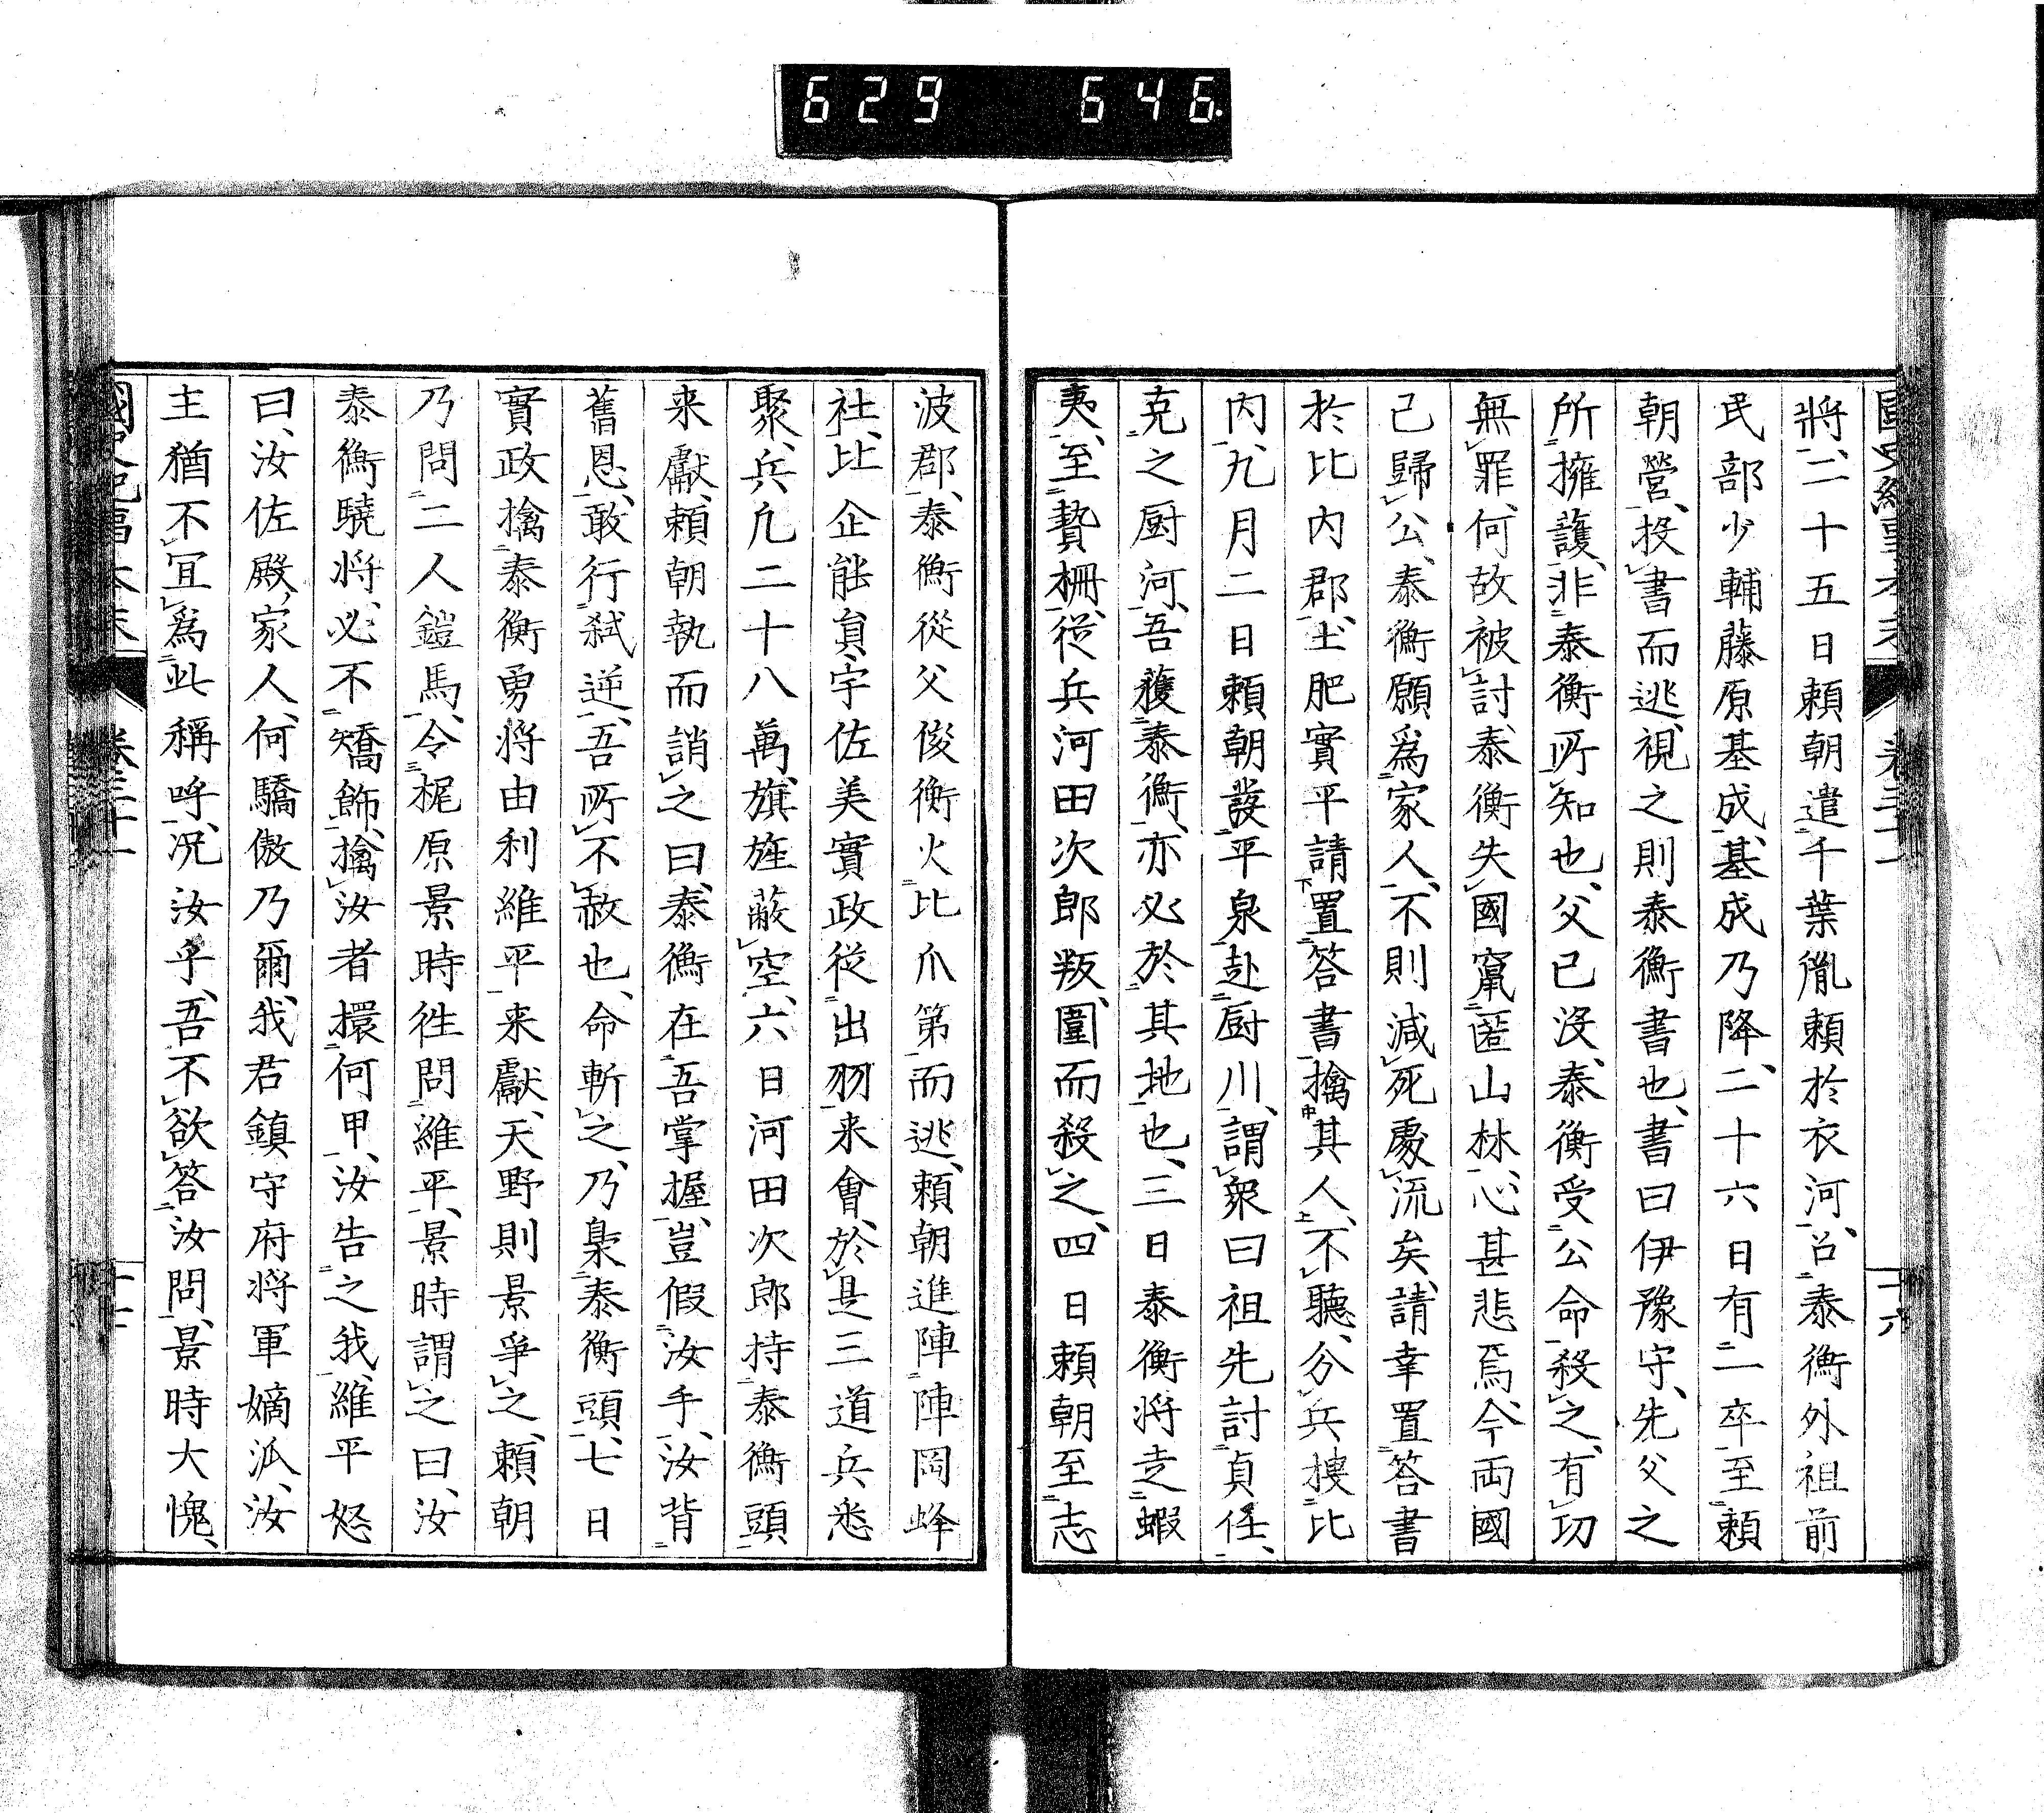 629 646.
將、二十五日頼朝遣千葉胤頼於衣河、召泰衡外祖前
民部少輔藤原基成、基成乃降、二十六日有一卒至頼
朝營、投書而逃、視之則泰衡書也、書曰伊豫守、先父之
所擁護、非泰衡所知也、父已沒、泰衡受公命殺之、有功
無罪、何故被討、泰衡失國竄匿山林、心甚悲焉、今両國
已歸公、泰衡願爲家人、不則減死處流矣、請幸置答書
於比内郡、土肥實平請置答書擒其人、不聽、分兵捜比
内、九月二日頼朝發平泉赴厨川、謂衆曰祖先討貞任、
克之厨河、吾獲泰衡亦必於其地也、三日泰衡将走蝦
夷、至贄柵、從兵河田次郎叛、圍而殺之、四日頼朝至志
波郡、泰衡從父俊衡火比爪第而逃、頼朝進陣陣岡蜂
社、比企能員宇佐美實政從出羽来會、於是三道兵悉
聚、兵凡二十八萬、旗旌蔽空、六日河田次郎持泰衡頭
来獻、頼朝執而誚之曰、泰衡在吾掌握、豈假汝手、汝背
舊恩、敢行弑逆、吾所不赦也、命斬之、乃梟泰衡頭、七日
實政擒泰衡勇将由利維平来獻、天野則景爭之、頼朝
乃問二人鎧馬、令梶原景時徃問維平、景時謂之曰、汝
泰衡驍将、必不矯飾、擒汝者擐何甲、汝告之我、維平怒
曰、汝佐殿家人、何驕傲乃爾、我君鎮守府将軍嫡泒、汝
主猶不宜爲此稱呼、况汝乎、吾不欲答汝問、景時大愧、